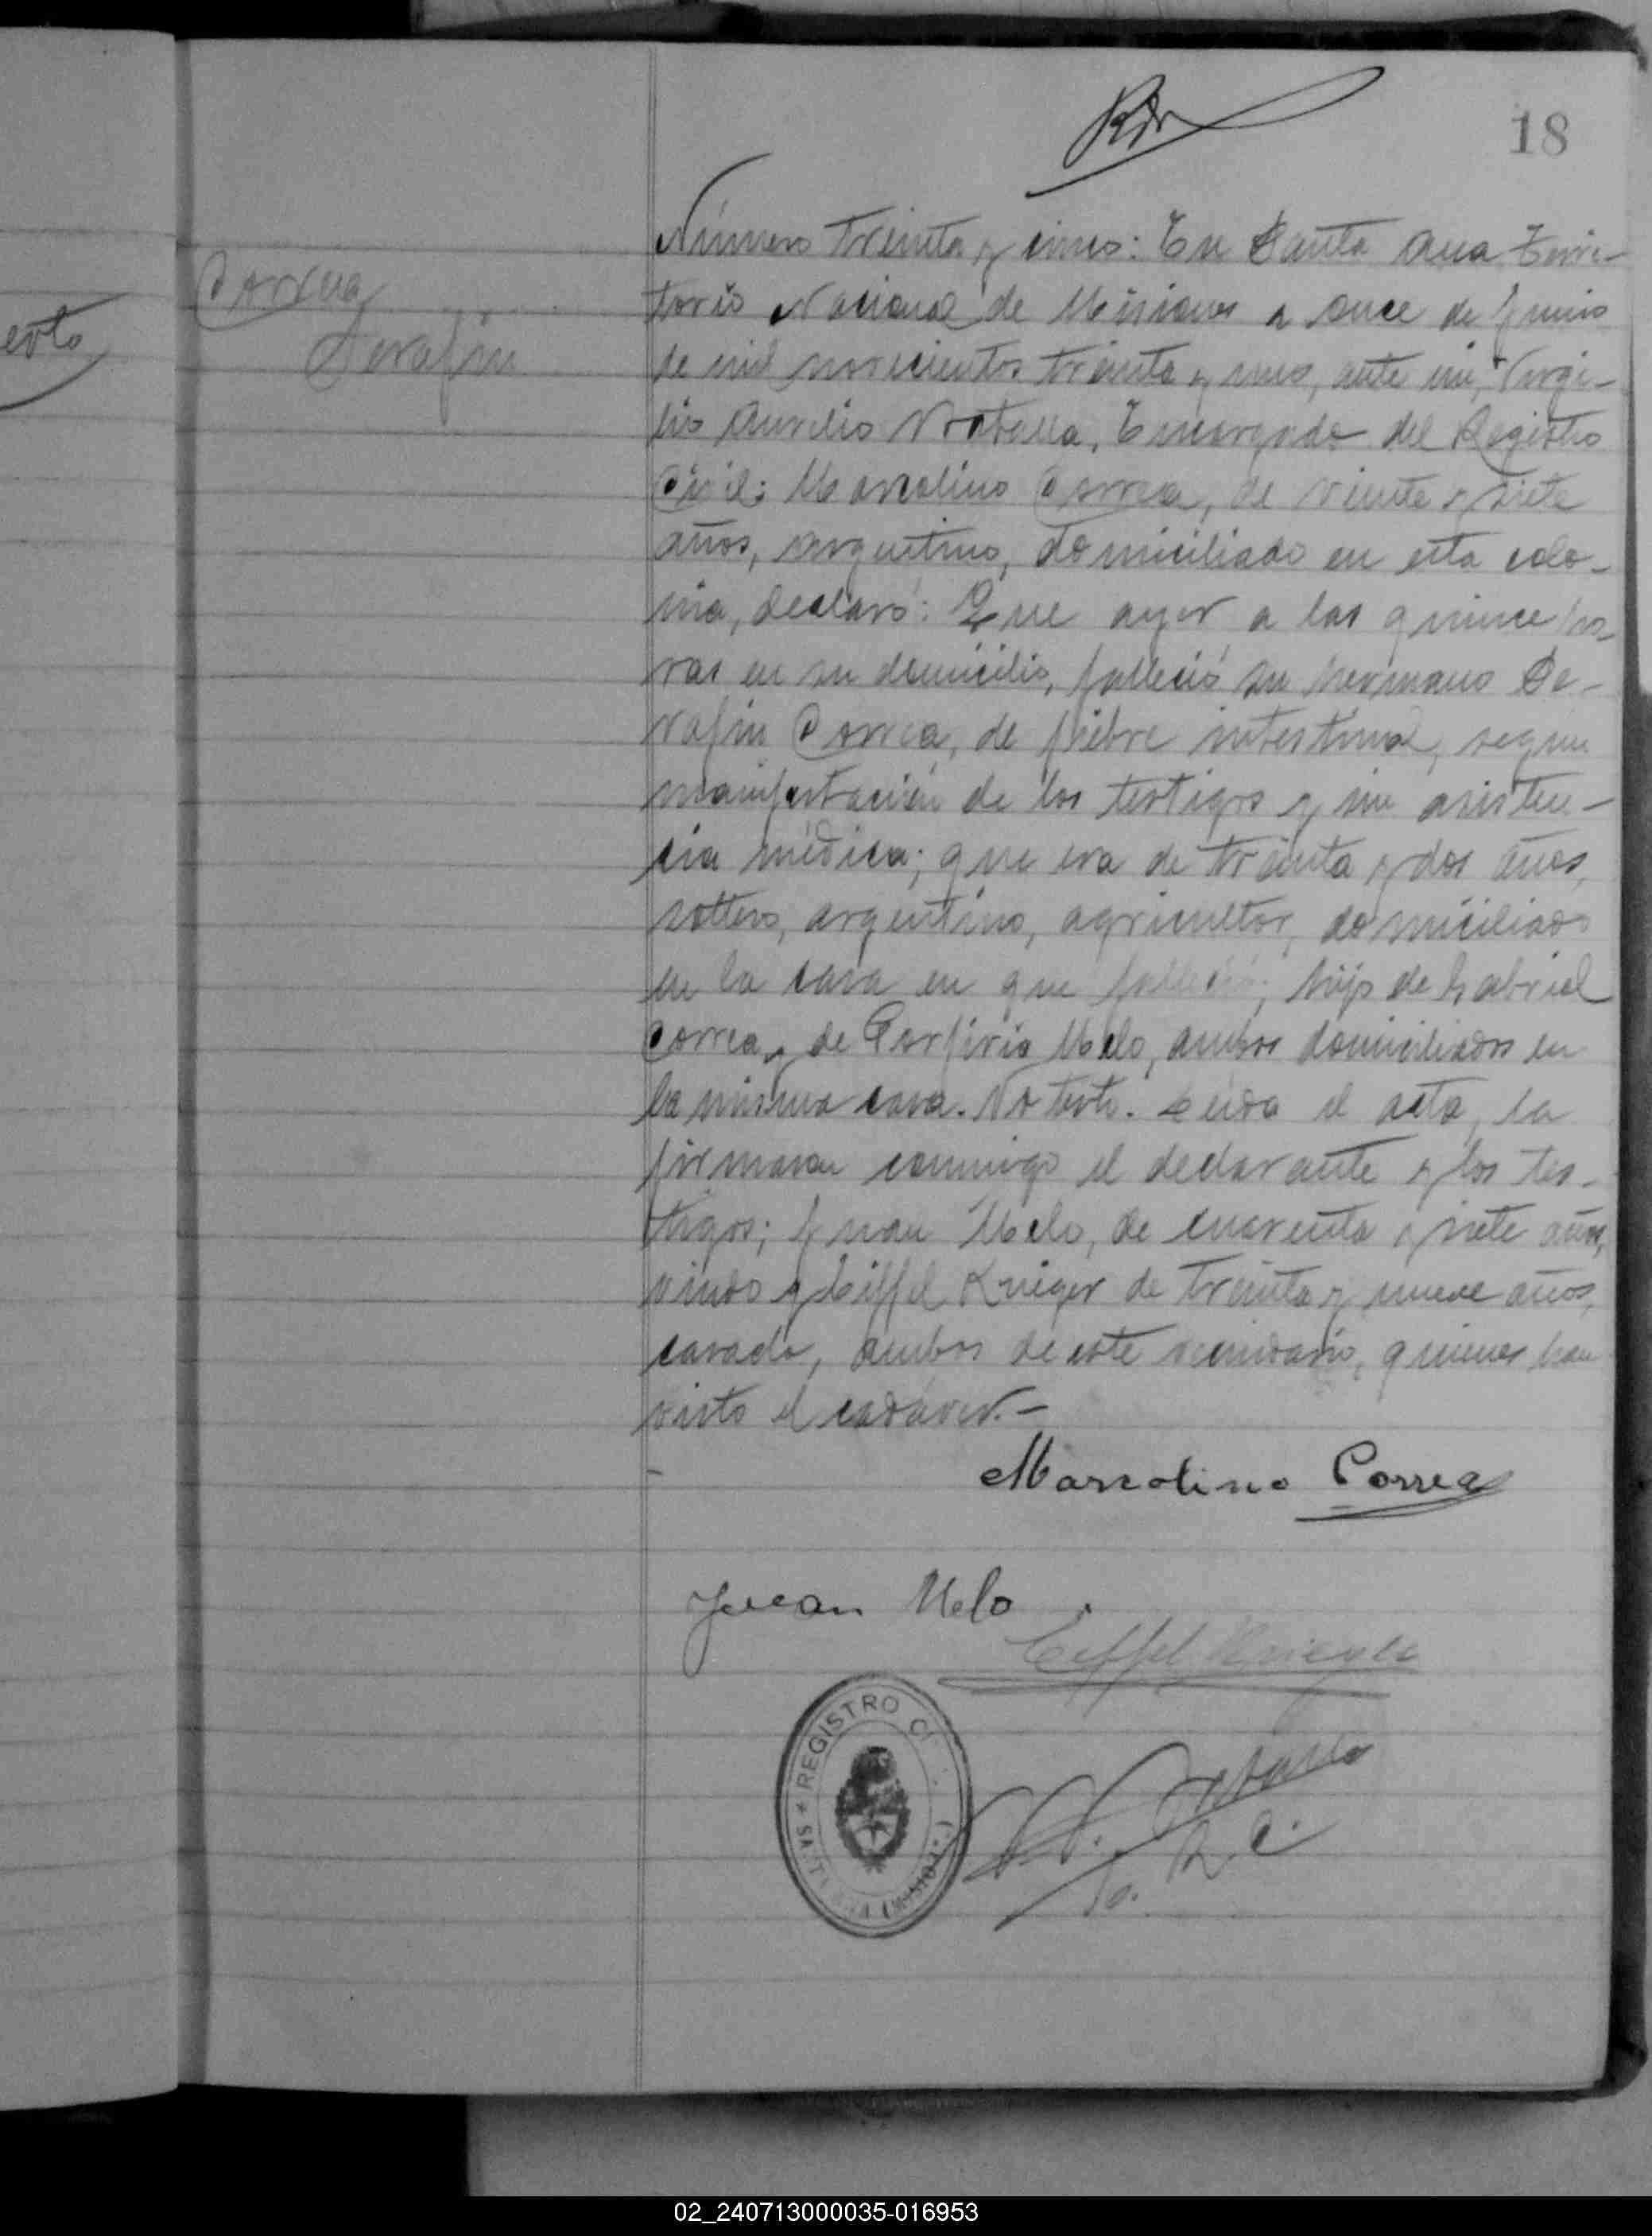 18
Número treinta y cinco: En Santa Ana Terri-
torio Nacional de Misiones a once de Junio
de mil novecientos treinta y uno, ante mí, Virgi-
lio Aurelio Encargado del Registro
Civil: Marcolino Correa, de veinte y siete
años, argentino, domiciliado en esta colo-
nia, declaró: Que ayer a las quince ho-
ras en su domicilio, falleció su hermano Se-
rafin Correa, de fiebre intestinal, segun
manifestación de los testigos y sin asisten-
cia médica; que era de treinta y dos años,
soltero, argentino, agricultor, domiciliado
en la casa en que falleció; hijo de Gabriel
Correa y de Porfiria Melo, ambos domiciliados en
la misma casa. No testó. Leida el acta, la
firmaron conmigo el declarante y los tes-
tigos; Juan Melo, de cuarenta y siete años,
viudo y Eiffel Krieger de treinta y nueve años,
casado, ambos de este vecindario, quienes han
visto el cadáver.-
Correa
Serafin
Marcolino Correa
Juan Melo
Eiffel
REGISTRO CI
R. C.
02_240713000035-016953